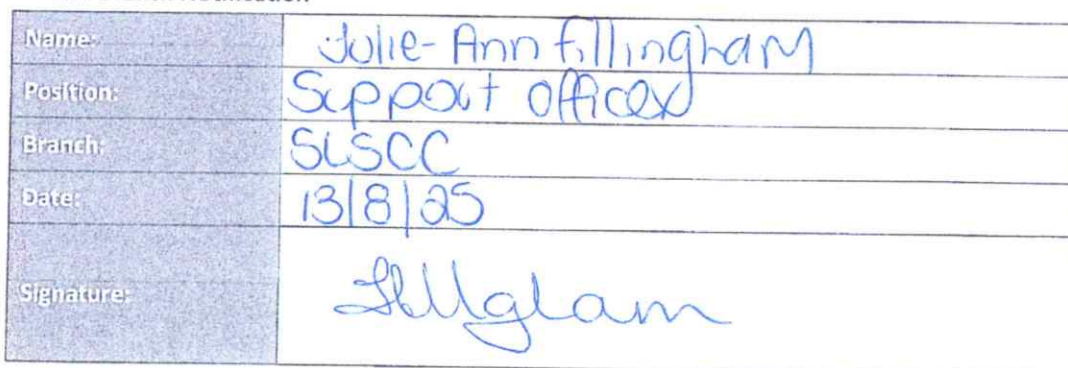 Name: Julie-Ann Fillingham
Position: Support Officer
Branch: SLSCC
Date: 13/8/25
Signature: